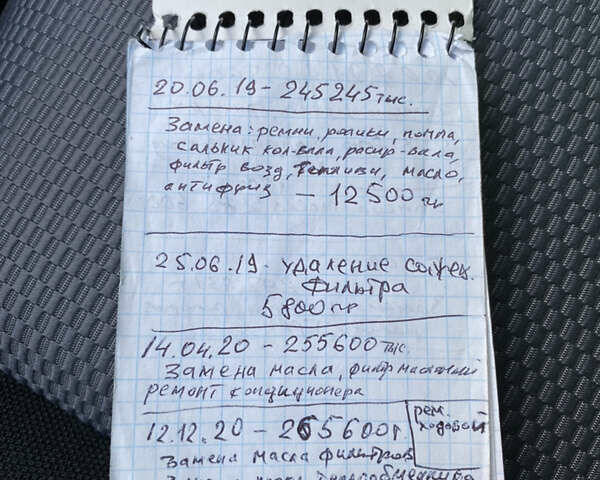 20.06.19 - 245245 тыс.
Замена: ремни, ролики, помпа,
сальник кол-вала, распр-вала,
фильтр возд, топливн, масло,
антифриз - 12500 гр
25.06.19. удаление сажев.
Фильтра
5800 гр
14.04.20 - 255600 тыс.
Замена масла, фильтр масляный
ремонт кондиционера
12.12.20 - 265600 г.
рем.
ходовой
Замена масла фильтров